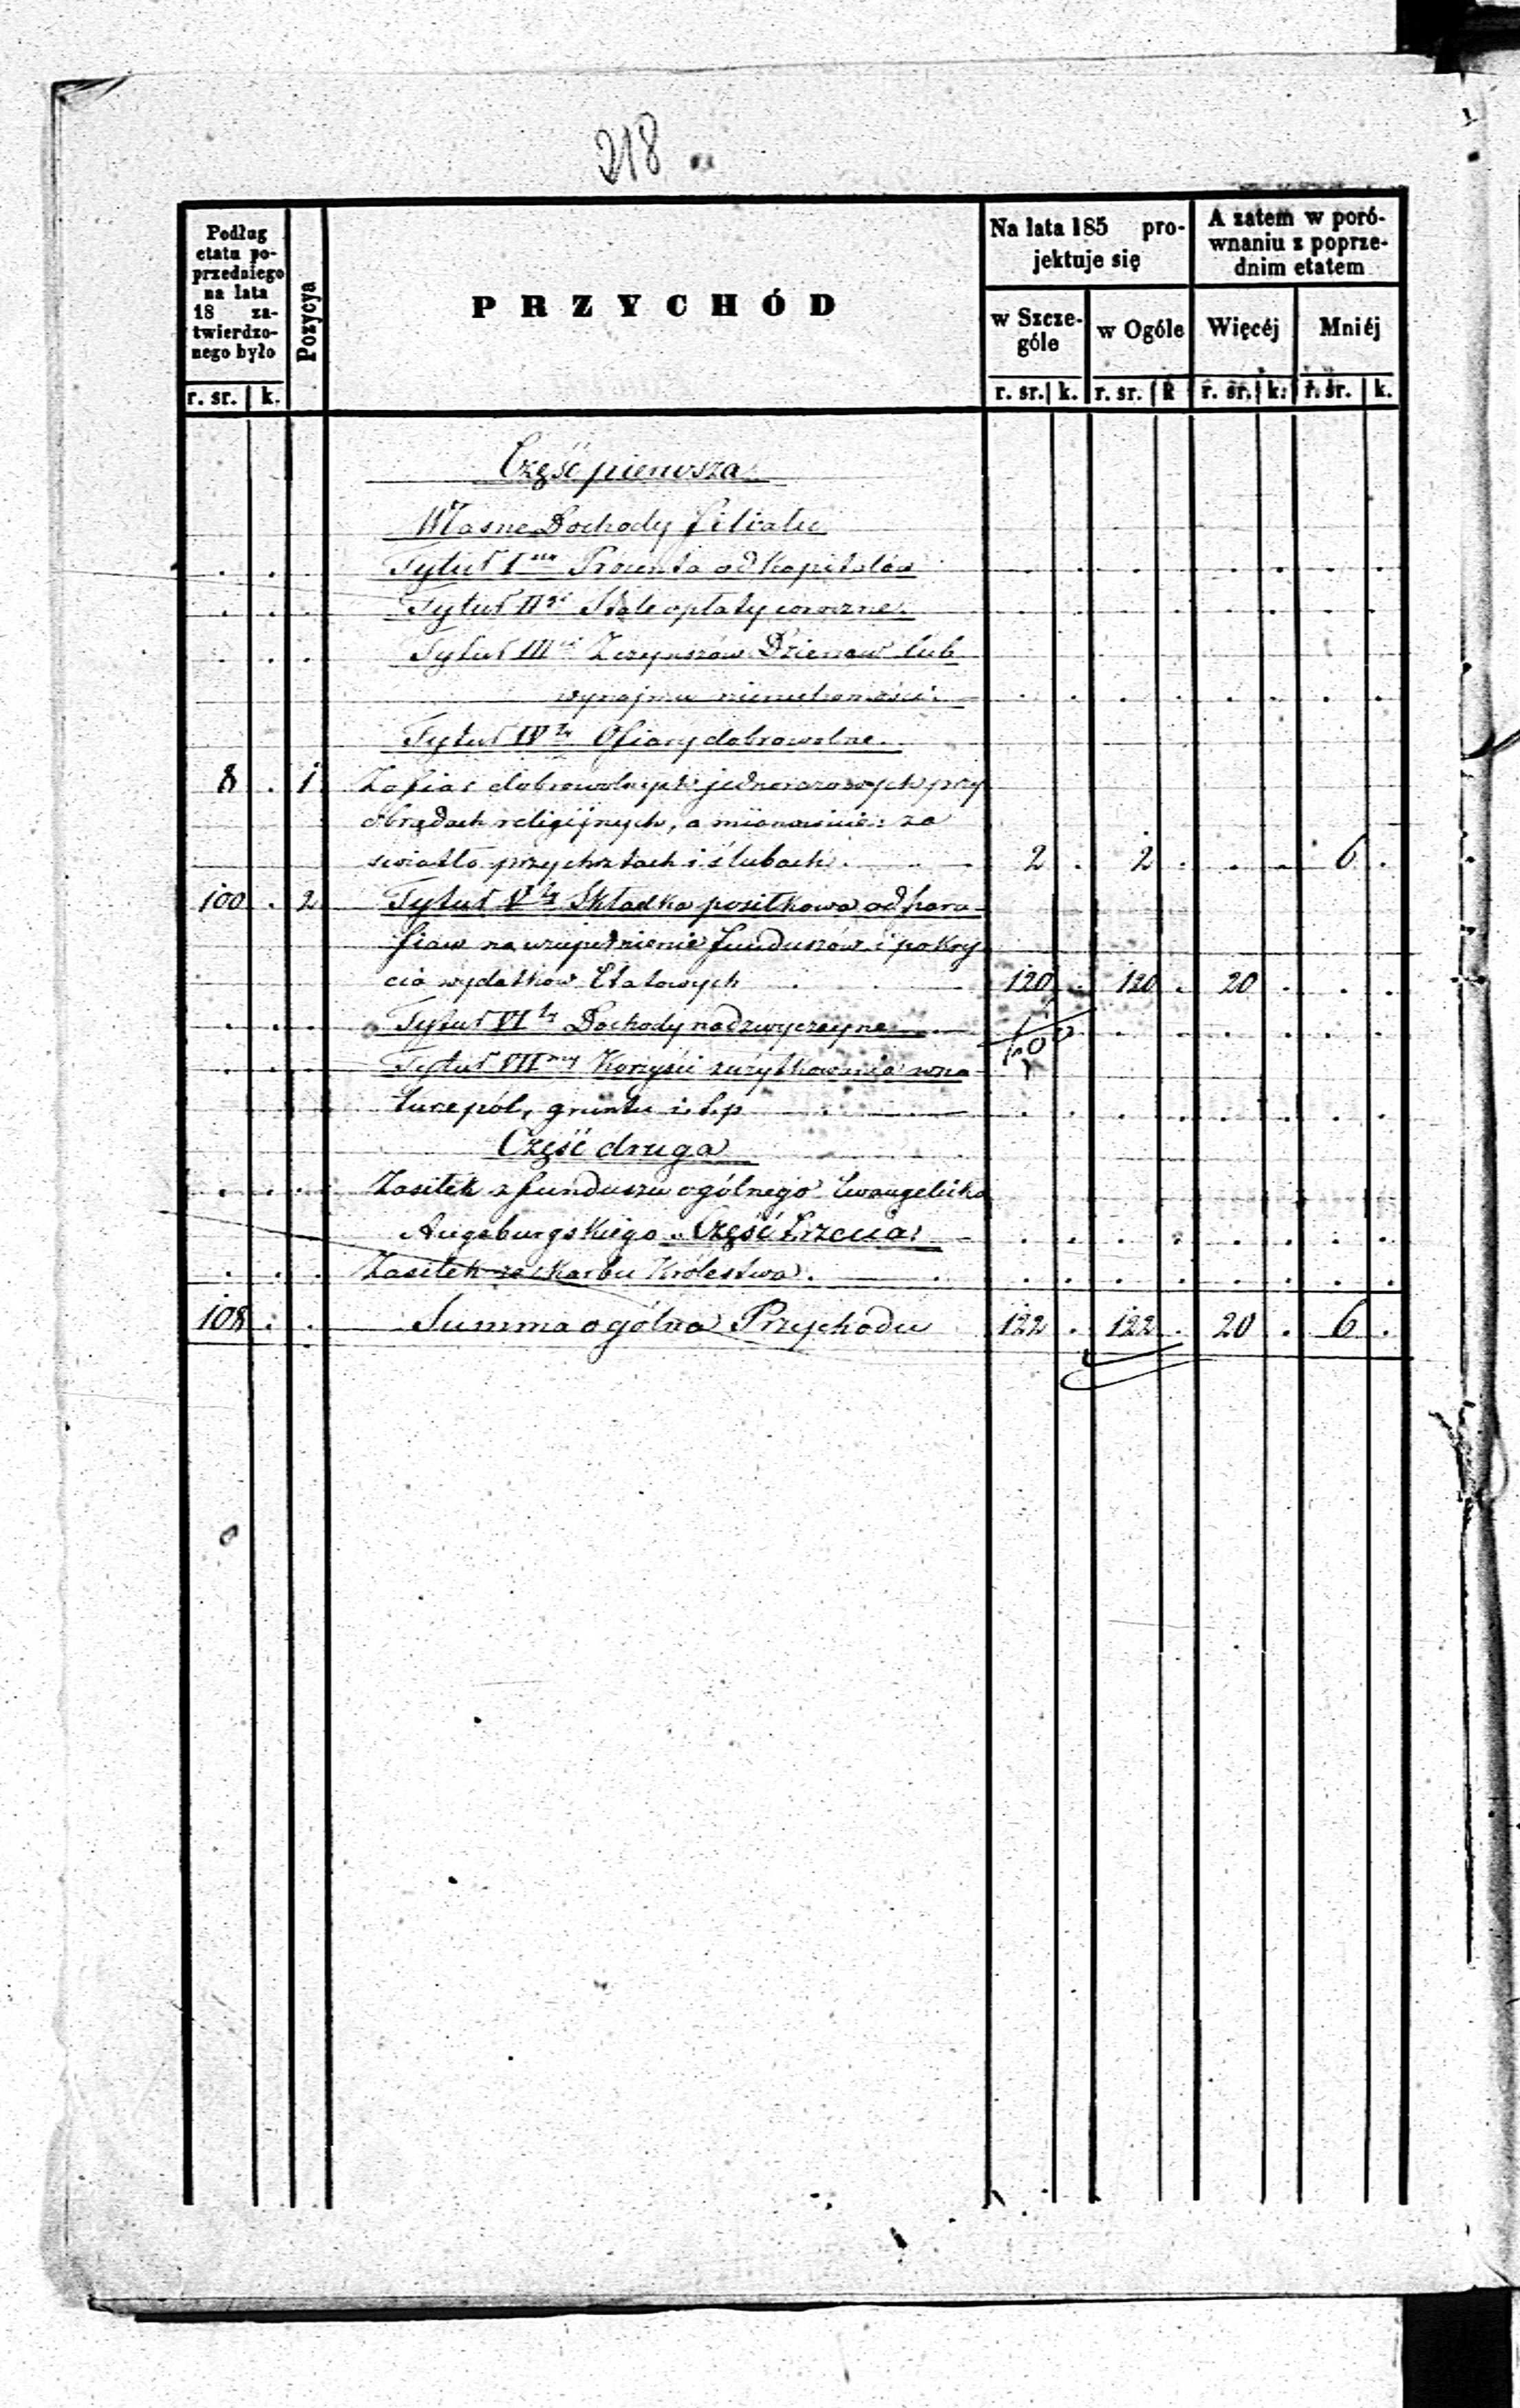 218
Podług etatu poprzedniego na lata 18 zatwierdzonego było
Pozycya
PRZYCHÓD
Na lata 185 projektuje się
A zatem w porównaniu z poprzednim etatem
w Szczególe
w Ogóle
Więcéj
Mniéj
r. sr. k. r. sr. k. r. sr. k r. sr. k. r. sr. k.
Część pierwsza
Własne Dochody filiału
Tytuł I Procenta od Kapitałów
Tytuł II Stałe opłaty coroczne
Tytuł III Z czynszów Dzierzaw lub
wynajmu nieruchomości
Tytuł IV Ofiary dobrowolne
8 . 1 Z ofiar dobrowolnych jednorazowych przy
obrzędach religijnych, a mianowicie: za
światło przy chrztach i ślubach . 2 . 2 . . . 6 .
100 . 2 Tytuł V Składka posiłkowa od para-
fian na uzupełnienie funduszów i pokry
cia wydatków Etatowych 120 . 120 . 20 . . .
Tytuł VI Dochody nadzwyczayne
Tytuł VII Korzyści z użytkowania w na
turze pól, gruntu i t.p
Część druga
Zasiłek z funduszu ogólnego Ewangelicko
Augsburgskiego Część trzecia
Zasiłek ze skarbu Królestwa.
108 . . Summa ogólna Przychodu 122 . 122 . 20 . 6 .